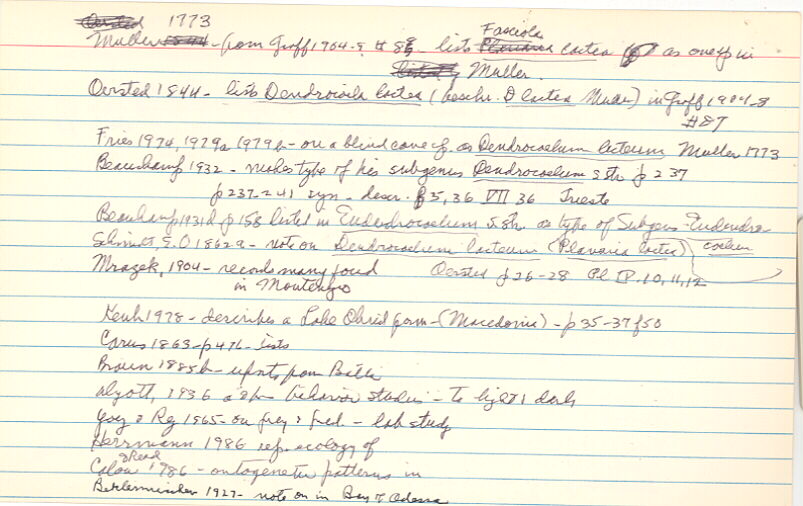 1773
Muller - from Groff 1964-9 # 88 - lists Fasciola lactea as one sp in
Muller.
Oersted 1844 - lists Dendrocoela lactea (beschr. D lactea Muller) in Groff
#87
Fries 1974, 1979a 1979b - on a blind cave sp. as Dendrocoelum lacteum Muller 1773
Beauchamp 1932 - makes type of his subgenus Dendrocoelum s str p 237
p 237-241 syn - descr. f 5, 36 VII 36 Trieste
Beauchamp 1931d p 158 listed in Eudendrocoelum s str as type of Subgenus Eudendro
coelum
Shmidt, E.O 1862a - note on Dendrocoelum lacteum (Planaria lactea)
Mrazek, 1904 - records many found Oersted p 26-28 Pl IV. 10, 11, 12
in Montenegro
Kenk 1978 - describes a Lake Ohrid form - (Macedonia) - p 35-37 f 50
Carus 1863 - p 476 - lists
Braun 1885b - reports from
1936 behavior studies - to light & dark
& Reg 1965 - on freq & fred - lab study
Herrmann 1986 rep. ecology of
Calow & Read 1986 - ontogenetic patterns in
Beklemischev 1927 - note on in Bay of Odessa